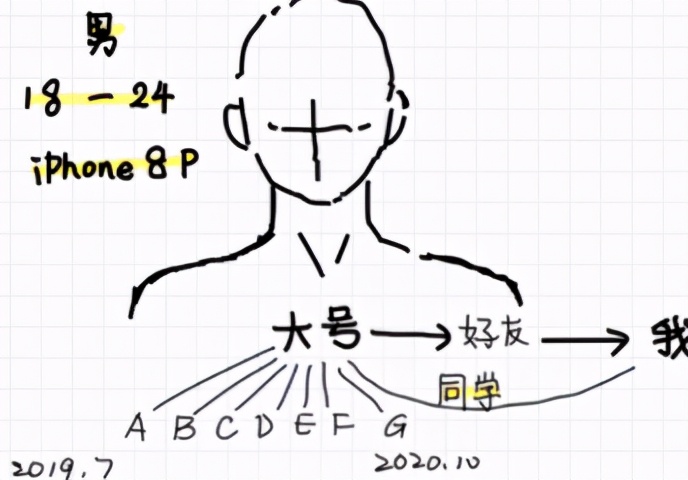 男
18 — 24
iPhone 8 P
大号 → 好友 → 我
同学
A B C D E F G
2019.7
2020.10